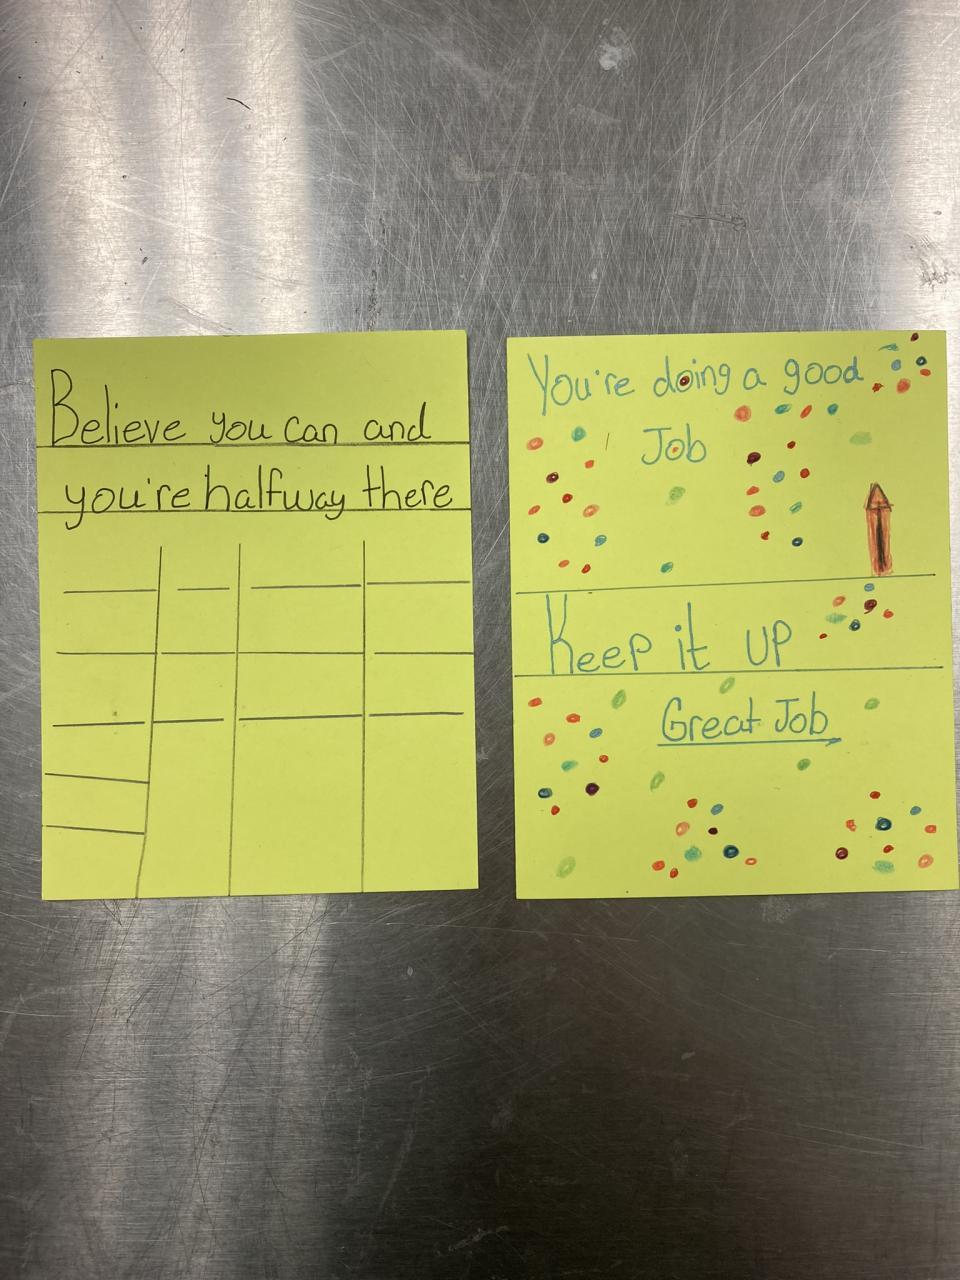 Believe you can and
you're halfway there
You're doing a good
Job
Keep it up
Great Job